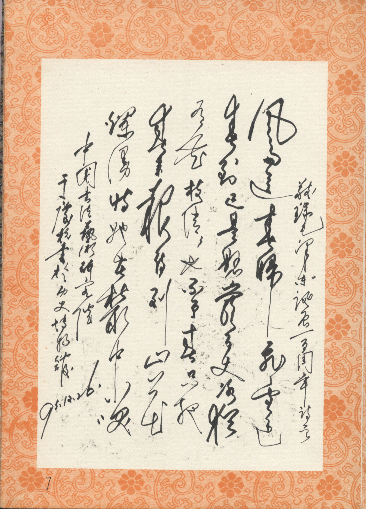 毛澤東誕辰一百周年
風雨送春歸飛雪迎
春到已是懸崖百丈冰猶
有花枝俏俏也不爭春只把
春來報待到山花
爛漫時她在叢中笑
中國書法藝術研究院
書於
95.12.26.
7